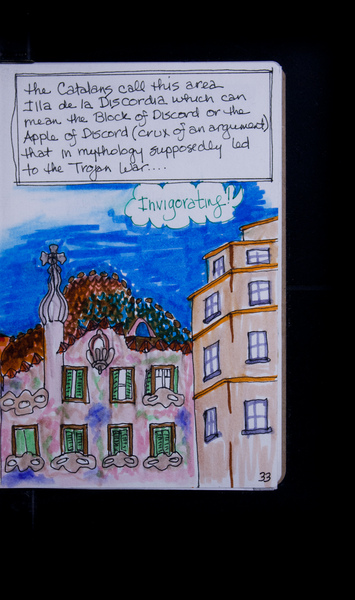 the Catalans call this area
Illa de la Discordia which can
mean the Block of Discord or the
Apple of Discord (crux of an argument)
that in mythology supposedly led
to the Trojan War....
Invigorating!
33